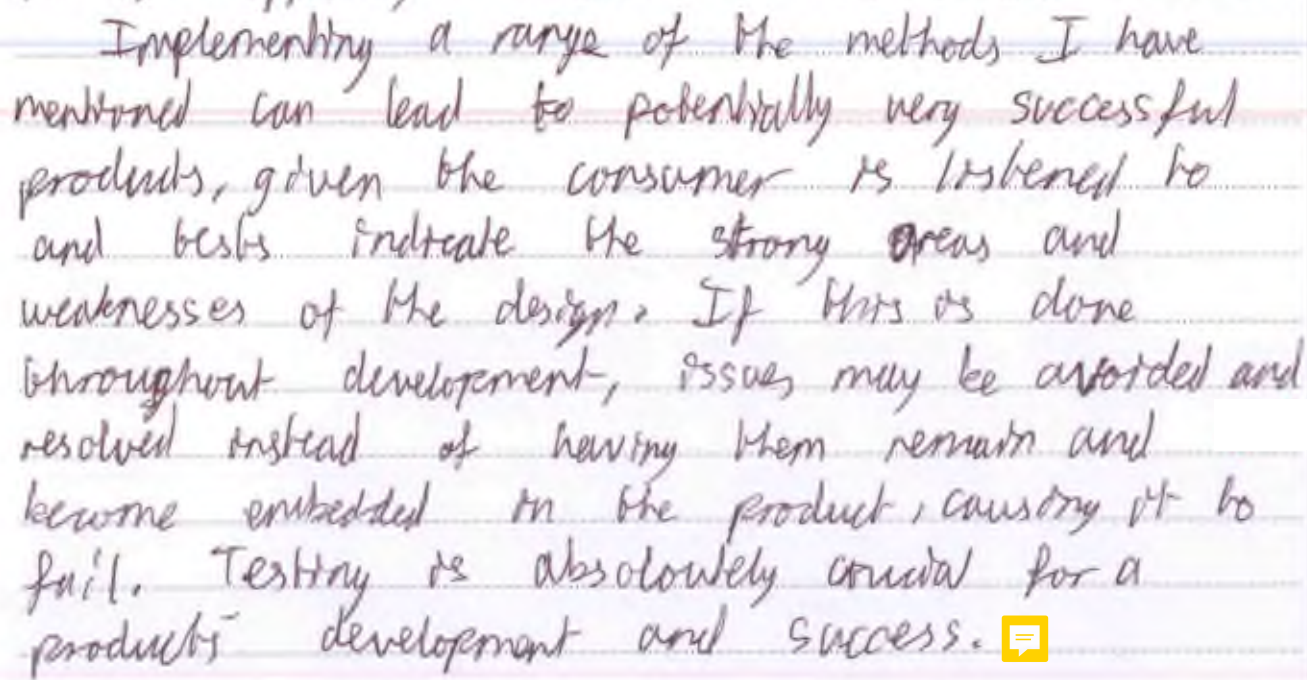 Implementing a range of the methods I have
mentioned can lead to potentially very successful
products, given the consumer is listened to
and tests indicate the strong areas and
weaknesses of the design. If this is done
throughout development, issues may be avoided and
resolved instead of having them remain and
become embedded in the product, causing it to
fail. Testing is absoloutely crucial for a
products development and success.